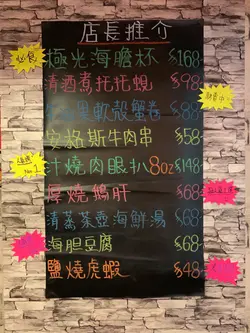 店長推介
極光海膽杯 $168
清酒煮托托蜆 $98
果軟殼蟹卷 $88
安格斯牛肉串 $58
汁燒肉眼扒8oz $148
厚燒鵝肝 $68
清蒸茶壺海鮮湯 $68
海胆豆腐 $68
鹽燒虎蝦 $48